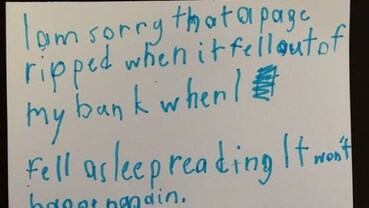 I am sorry that a page
ripped when it fell out of
my bank when I
fell asleep reading It won't
happen again.